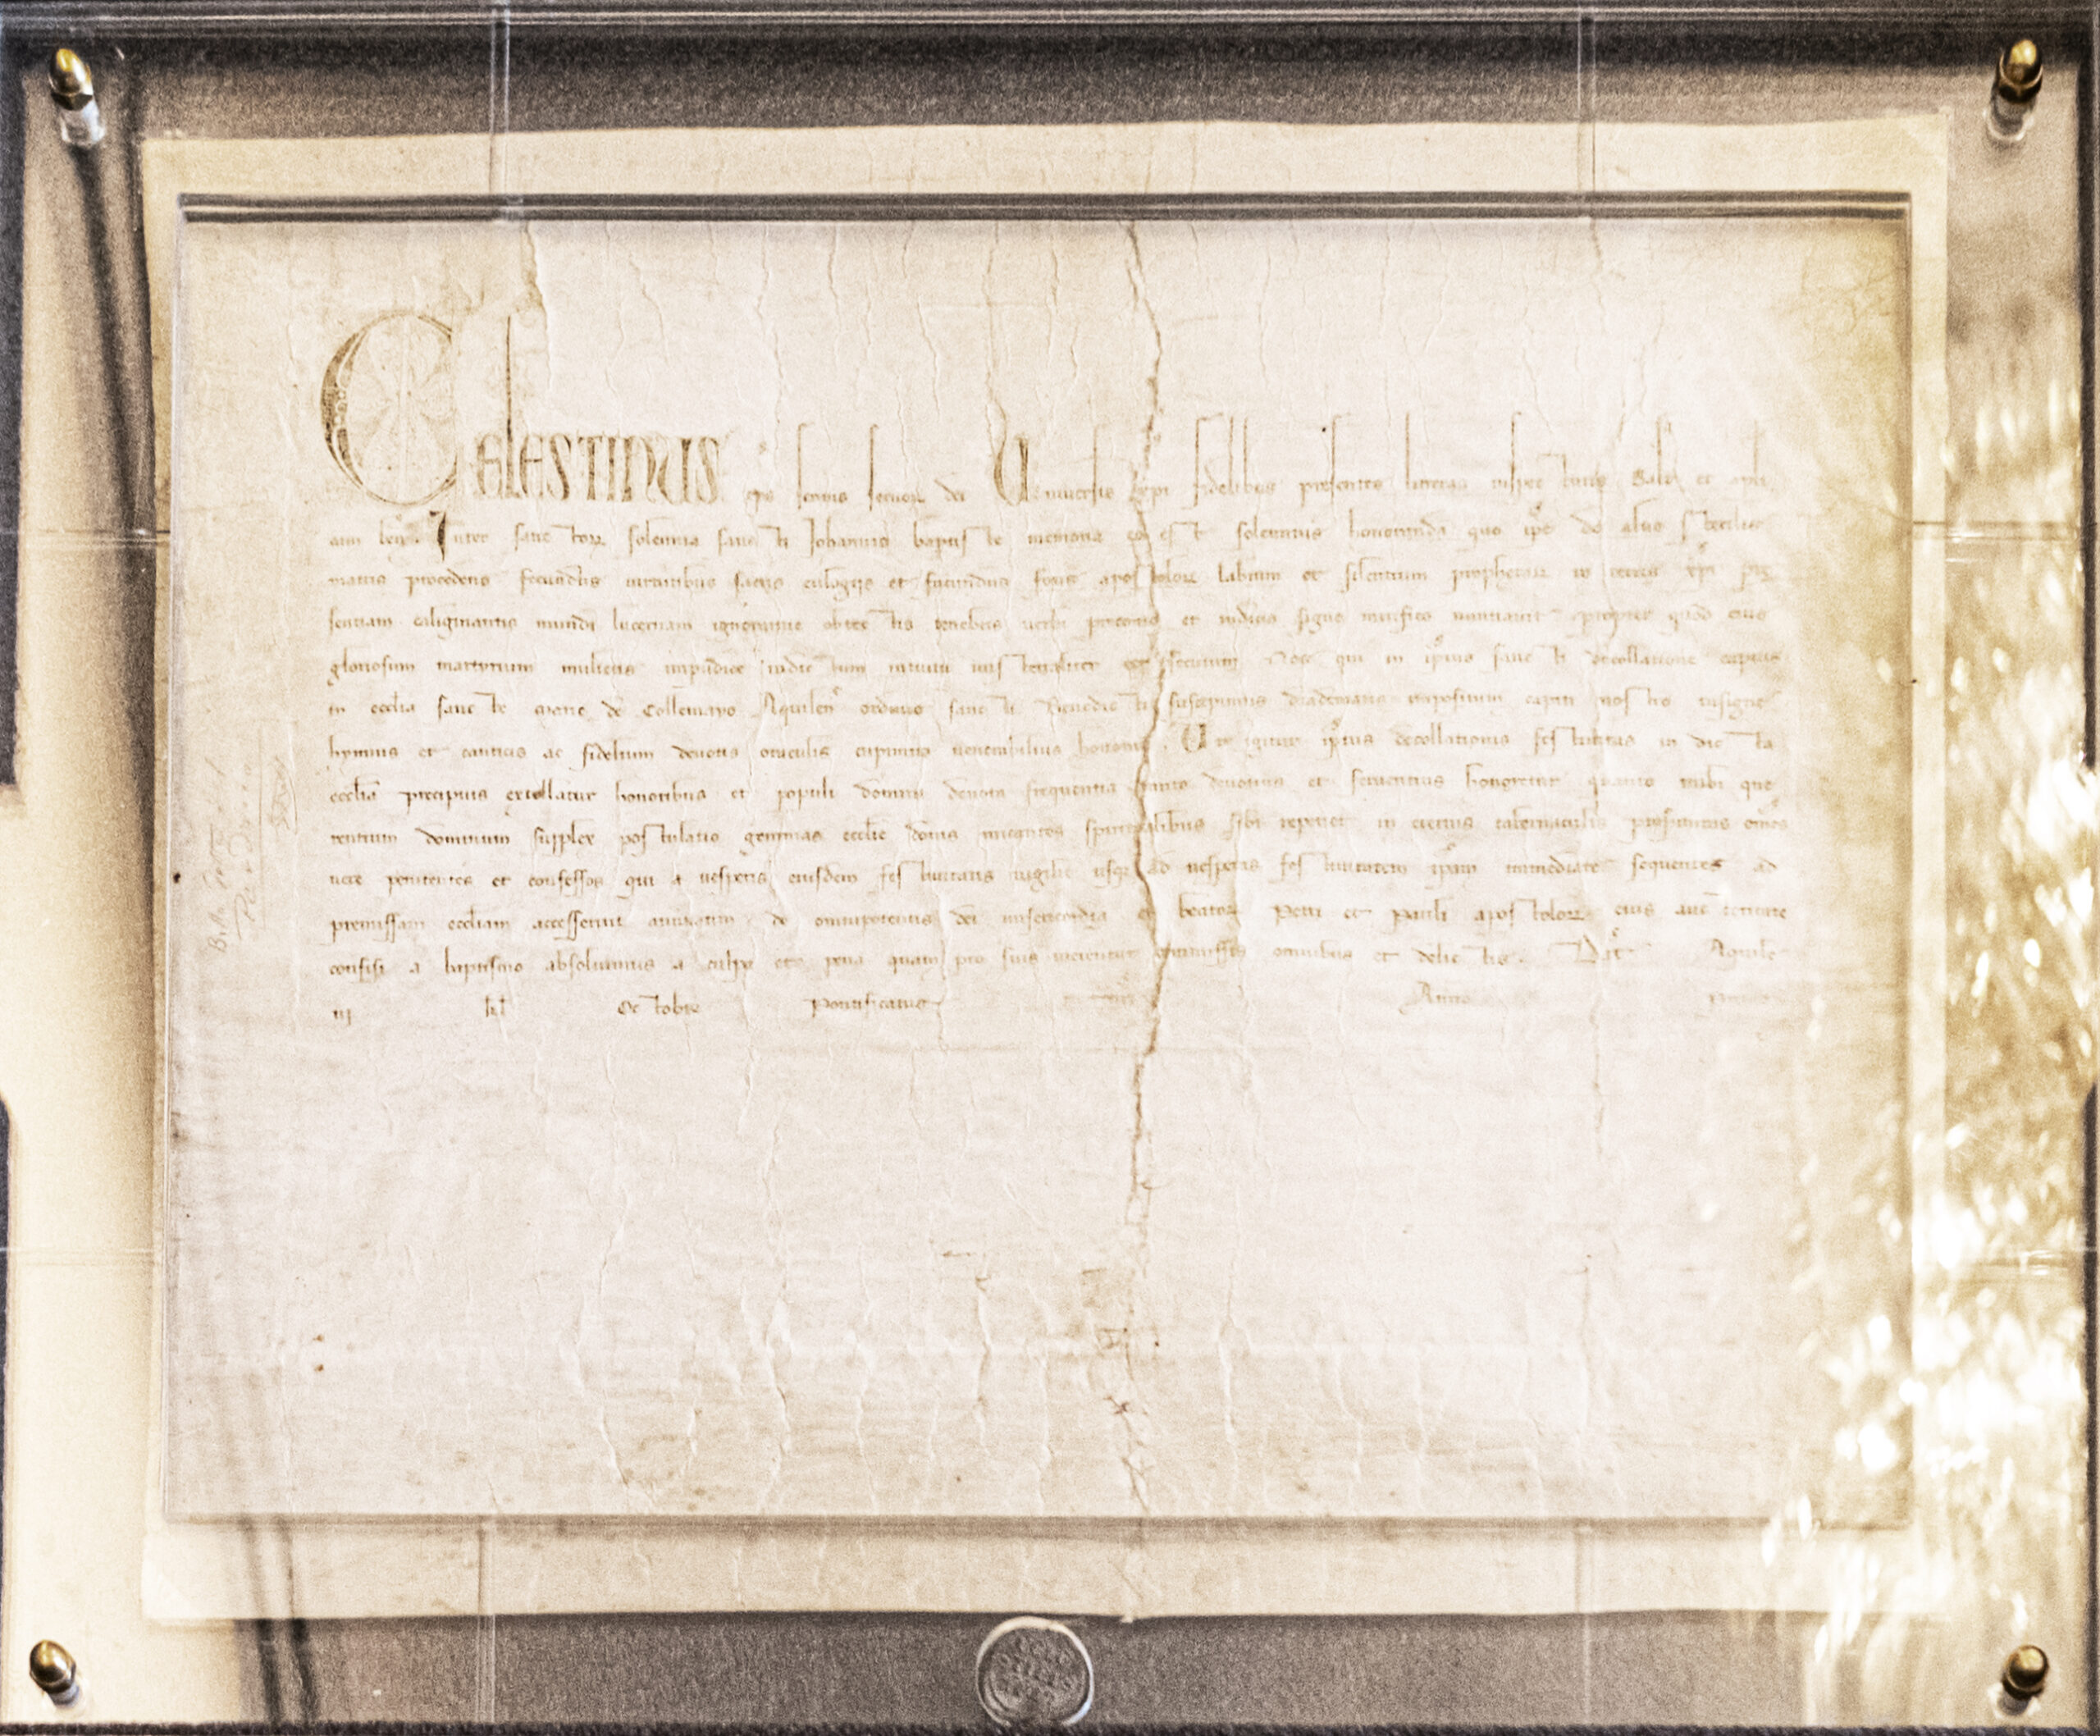 Celestinus eps servus servor dei Universis xpi fidelibus presentes litteras inspecturis Salt et apli
cam ben Inter sanctorz solemnia sancti Johannis baptiste memoria eo est solemnius honoranda quo ipse de alvo sterilis
matris procedens fecundus virtutibus sacris eulogiis et facundus fons apostolorz labium et silentium prophetarz in terris xpi pre
sentiam caliginantis mundi lucernam ignorantie obtectis tenebris verbi preconio et indicio signo mirifico nuntiavit propter quod eius
gloriosum martyrium mulieris impudice indictum intuitu misterialiter est secutum Nos qui in ipius sancti decollatione capitis
in ecclia sancte Marie de Collemayo Aquilen ordinis sancti Benedicti suscepimus diadematis impositum capiti nostro insigne
hymnis et canticis ac fidelium devotis oraculis cupimus venerabilius honorari. Ut igitur ipius decollationis festivitas in dicta
ecclia precipuis extollatur honoribus et populi domini devota frequentia tanto devotius et ferventius honoretur quanto inibi que
rentium dominum supplex postulatio gemmas ecclie donis micantes spiritualibus sibi reperiet in eternis tabernaculis profuturas omes
vere penitentes et confessos qui a vesperis eiusdem festivitatis vigilie usqz ad vesperas festivitatem ipam immediate sequentes ad
premissam eccliam accesserint annuatim de omnipotentis dei misericordia et beatorz Petri et Pauli apostolorz eius auctoritate
confisi a baptismo absolvimus a culpa et pena quam pro suis merentur commissis omnibus et delictis. Dat Aquile
iij kl Octobr Pontificatus nri Anno primo